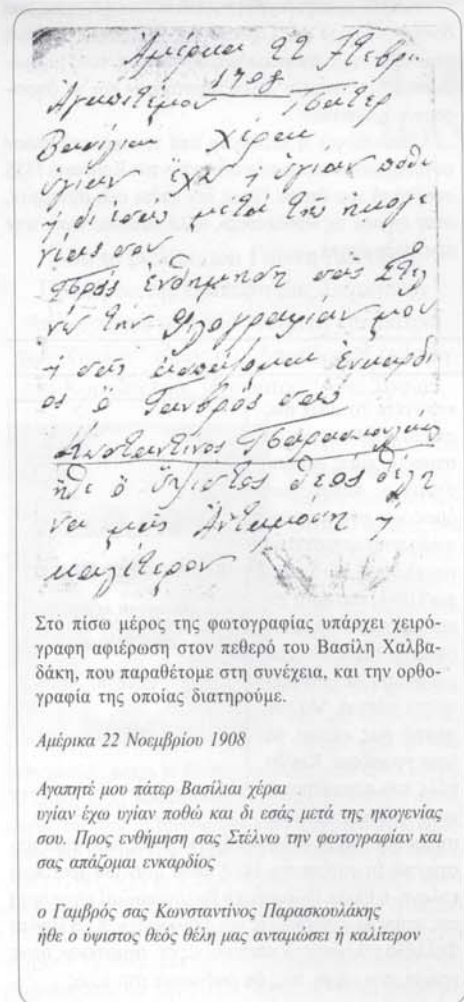 22
1908
Αγαπιτέμου Πάτερ
Βασίλιαι χέραι
ὑγίαν ἔχω ὑγίαν ποθω
δι εσας μετα της ηκογε
νίας σου
Προς ἐνθήμηση σας Στελ
νω την μου
σας ενκαρδι
ος ὁ Γανβρός σας
Κωσταντινος Παρασκουλακης
ηθε ὁ ὕψιστος θεος θελη
να μας ἀνταμοση ή
καλίτερον
Στο πίσω μέρος της φωτογραφίας υπάρχει χειρό-
γραφη αφιέρωση στον πεθερό του Βασίλη Χαλβα-
δάκη, που παραθέτομε στη συνέχεια, και την ορθο-
γραφία της οποίας διατηρούμε.
Αμέρικα 22 Νοεμβρίου 1908
Αγαπητέ μου πάτερ Βασίλιαι χέραι
υγίαν έχω υγίαν ποθώ και δι εσάς μετά της ηκογενίας
σου. Προς ενθήμηση σας Στέλνω την φωτογραφίαν και
σας απάζομαι ενκαρδίος
ο Γαμβρός σας Κωνσταντίνος Παρασκουλάκης
ήθε ο ύψιστος θεός θέλη μας ανταμώσει ή καλίτερον